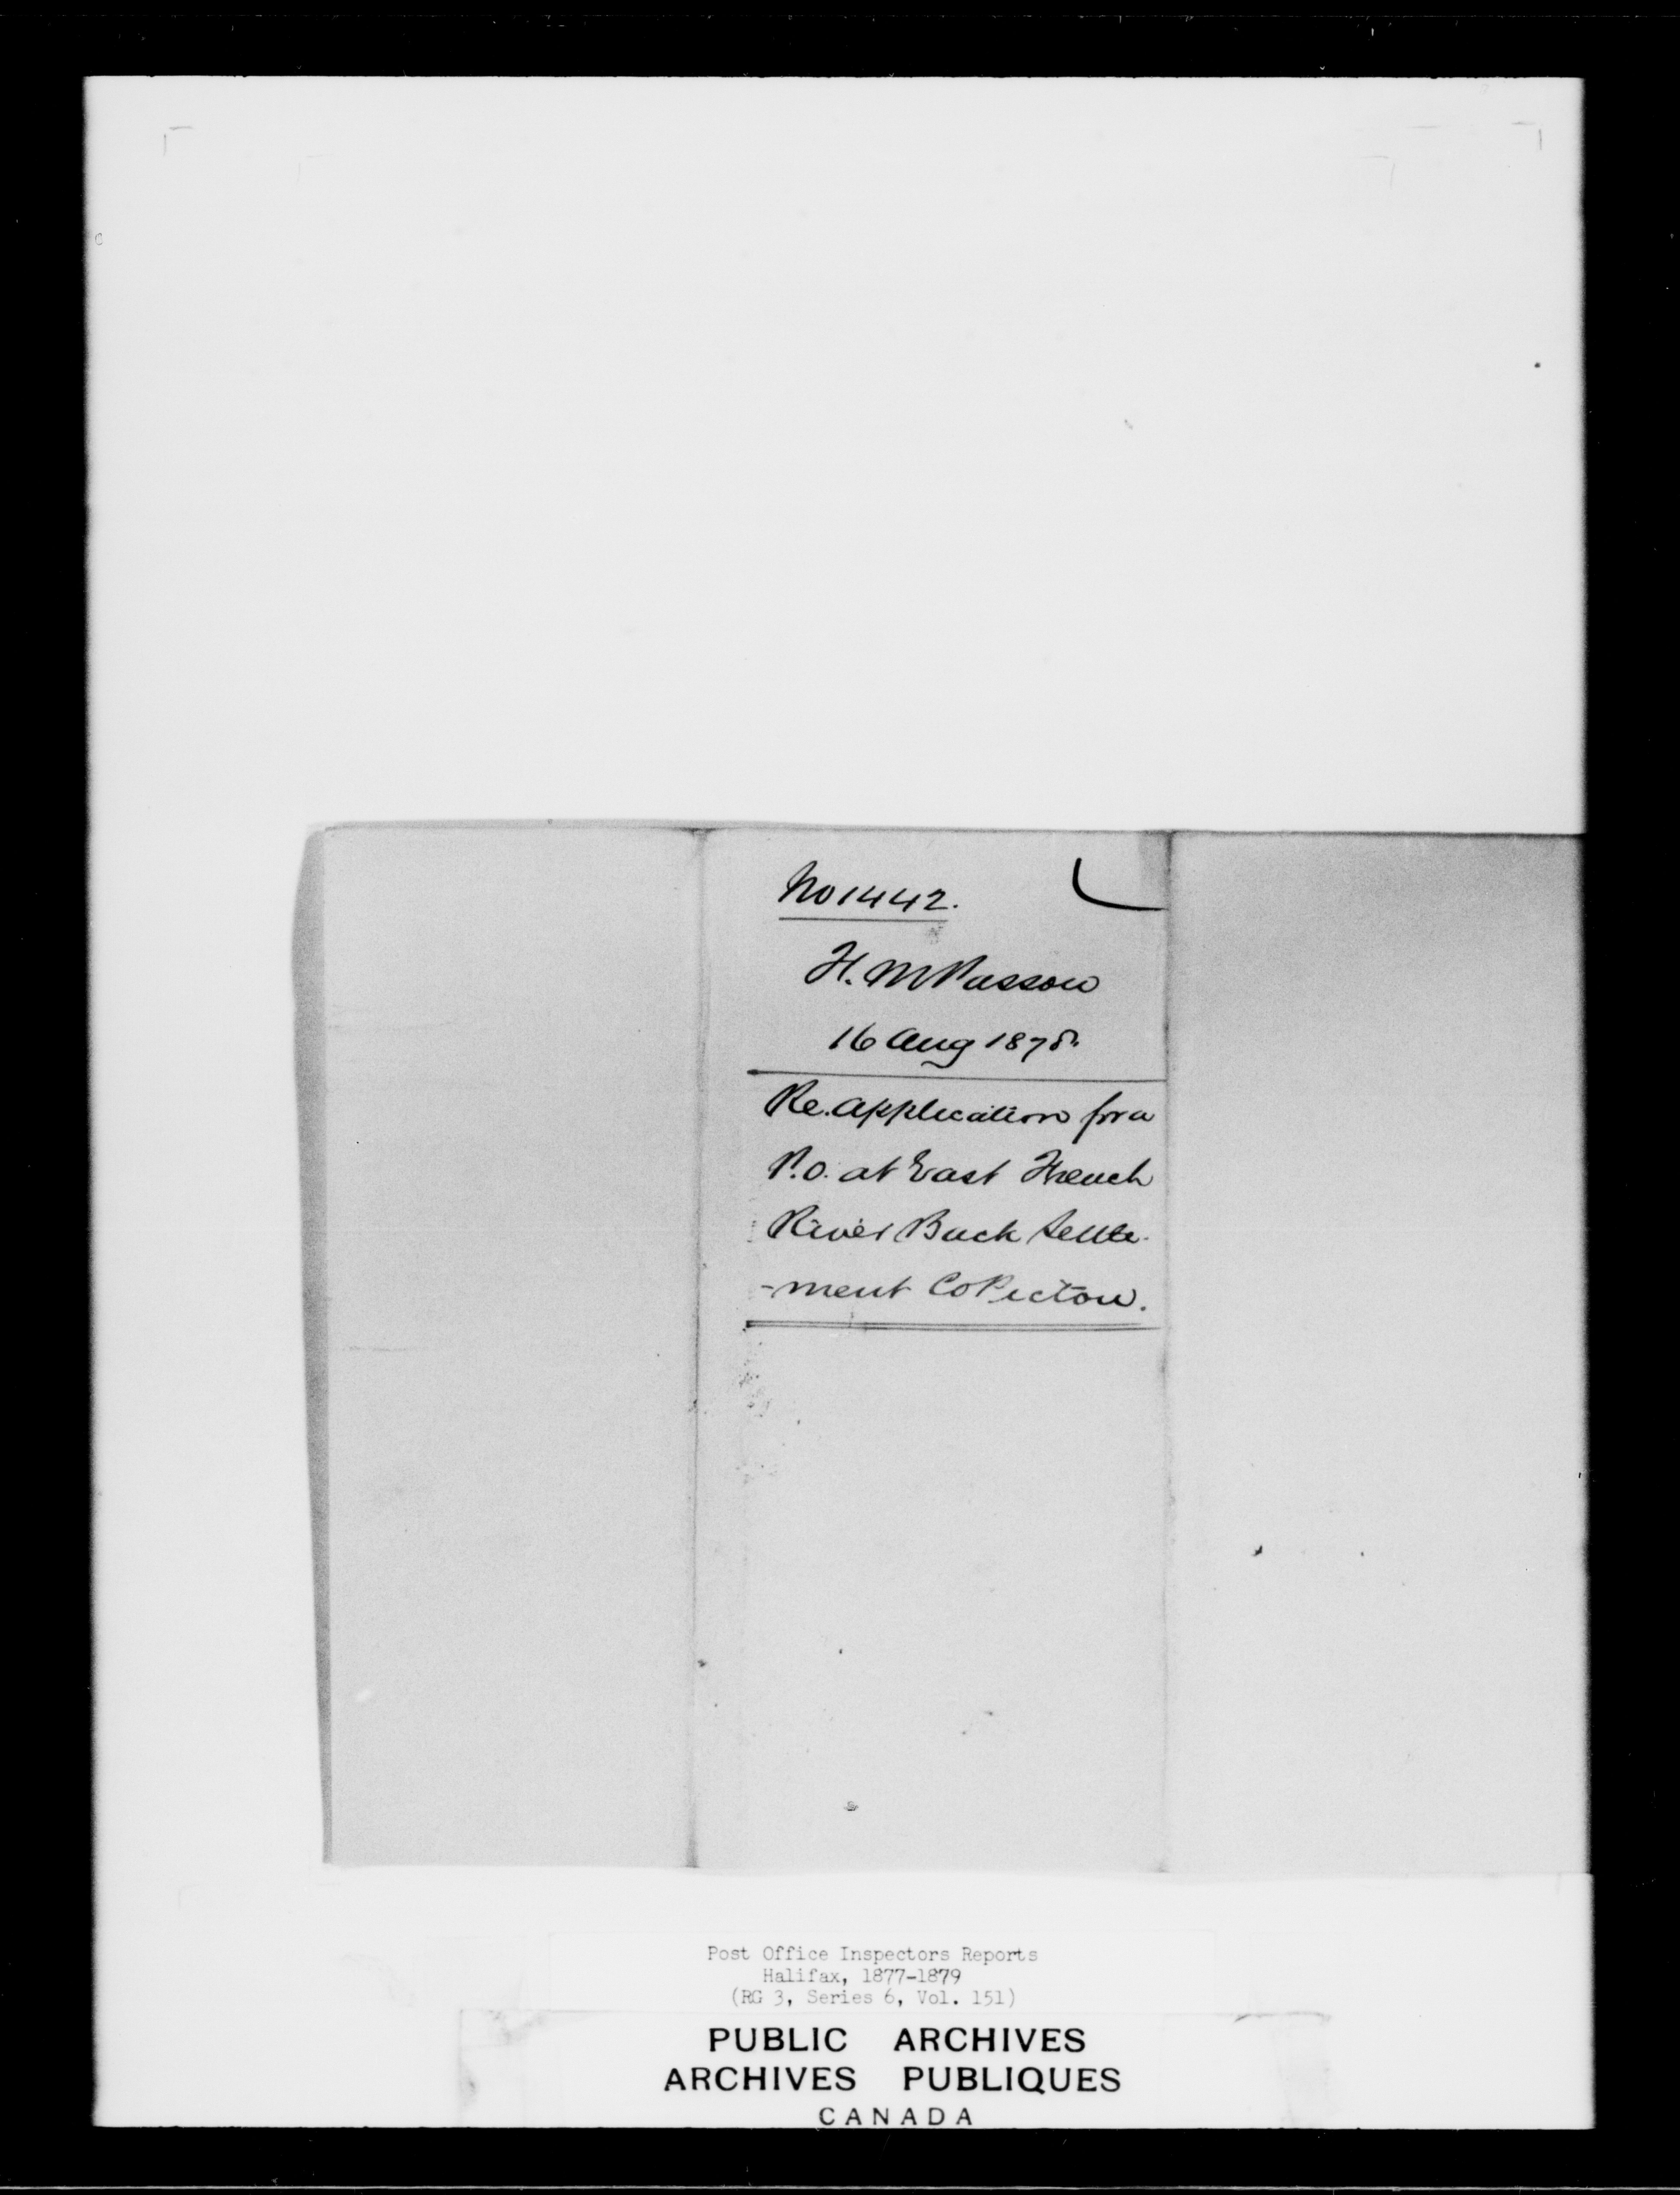 No 1442.
H. M Passow
16 Aug 1878.
Re. application for a
P.O. at East French
River Back Settle-
-ment Co Pictou.
Post Office Inspectors Reports
Halifax, 1877-1879
(RG 3, Series 6, Vol. 151)
PUBLIC ARCHIVES
ARCHIVES PUBLIQUES
CANADA